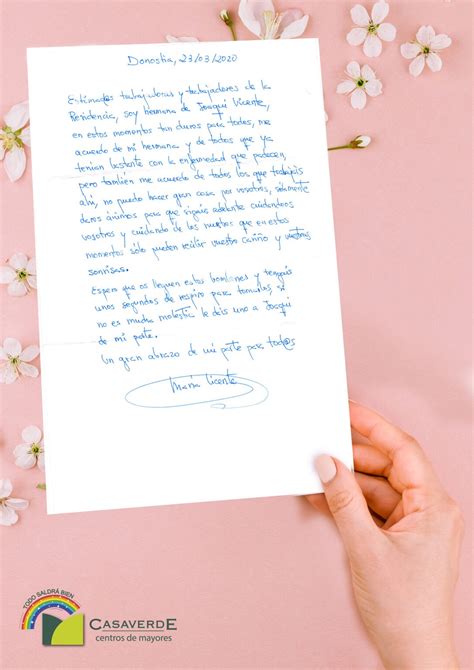 Donostia, 23/03/2020
Estimadas trabajadoras y trabajadores de la
Residencia, soy hermana de Joaqui Vicente,
en estos momentos tan duros para todos, me
acuerdo de mi hermana y de todos que ya
tenían bastante con la enfermedad que padecen,
pero también me acuerdo de todos los que trabajáis
ahí, no puedo hacer gran cosa por vosotros, solamente
daros ánimos para que sigáis adelante cuidándoos
vosotros y cuidando de los nuestros que en estos
momentos sólo pueden recibir vuestro cariño y vuestras
sonrisas.
Espero que os lleguen estos bombones y tengáis
unos segundos de respiro para tomarlos, si
no es mucha molestia le deis uno a Joaqui
de mi parte.
Un gran abrazo de mi parte para tod@s
María Vicente
TODO SALDRÁ BIEN
CASAVERDE
centros de mayores